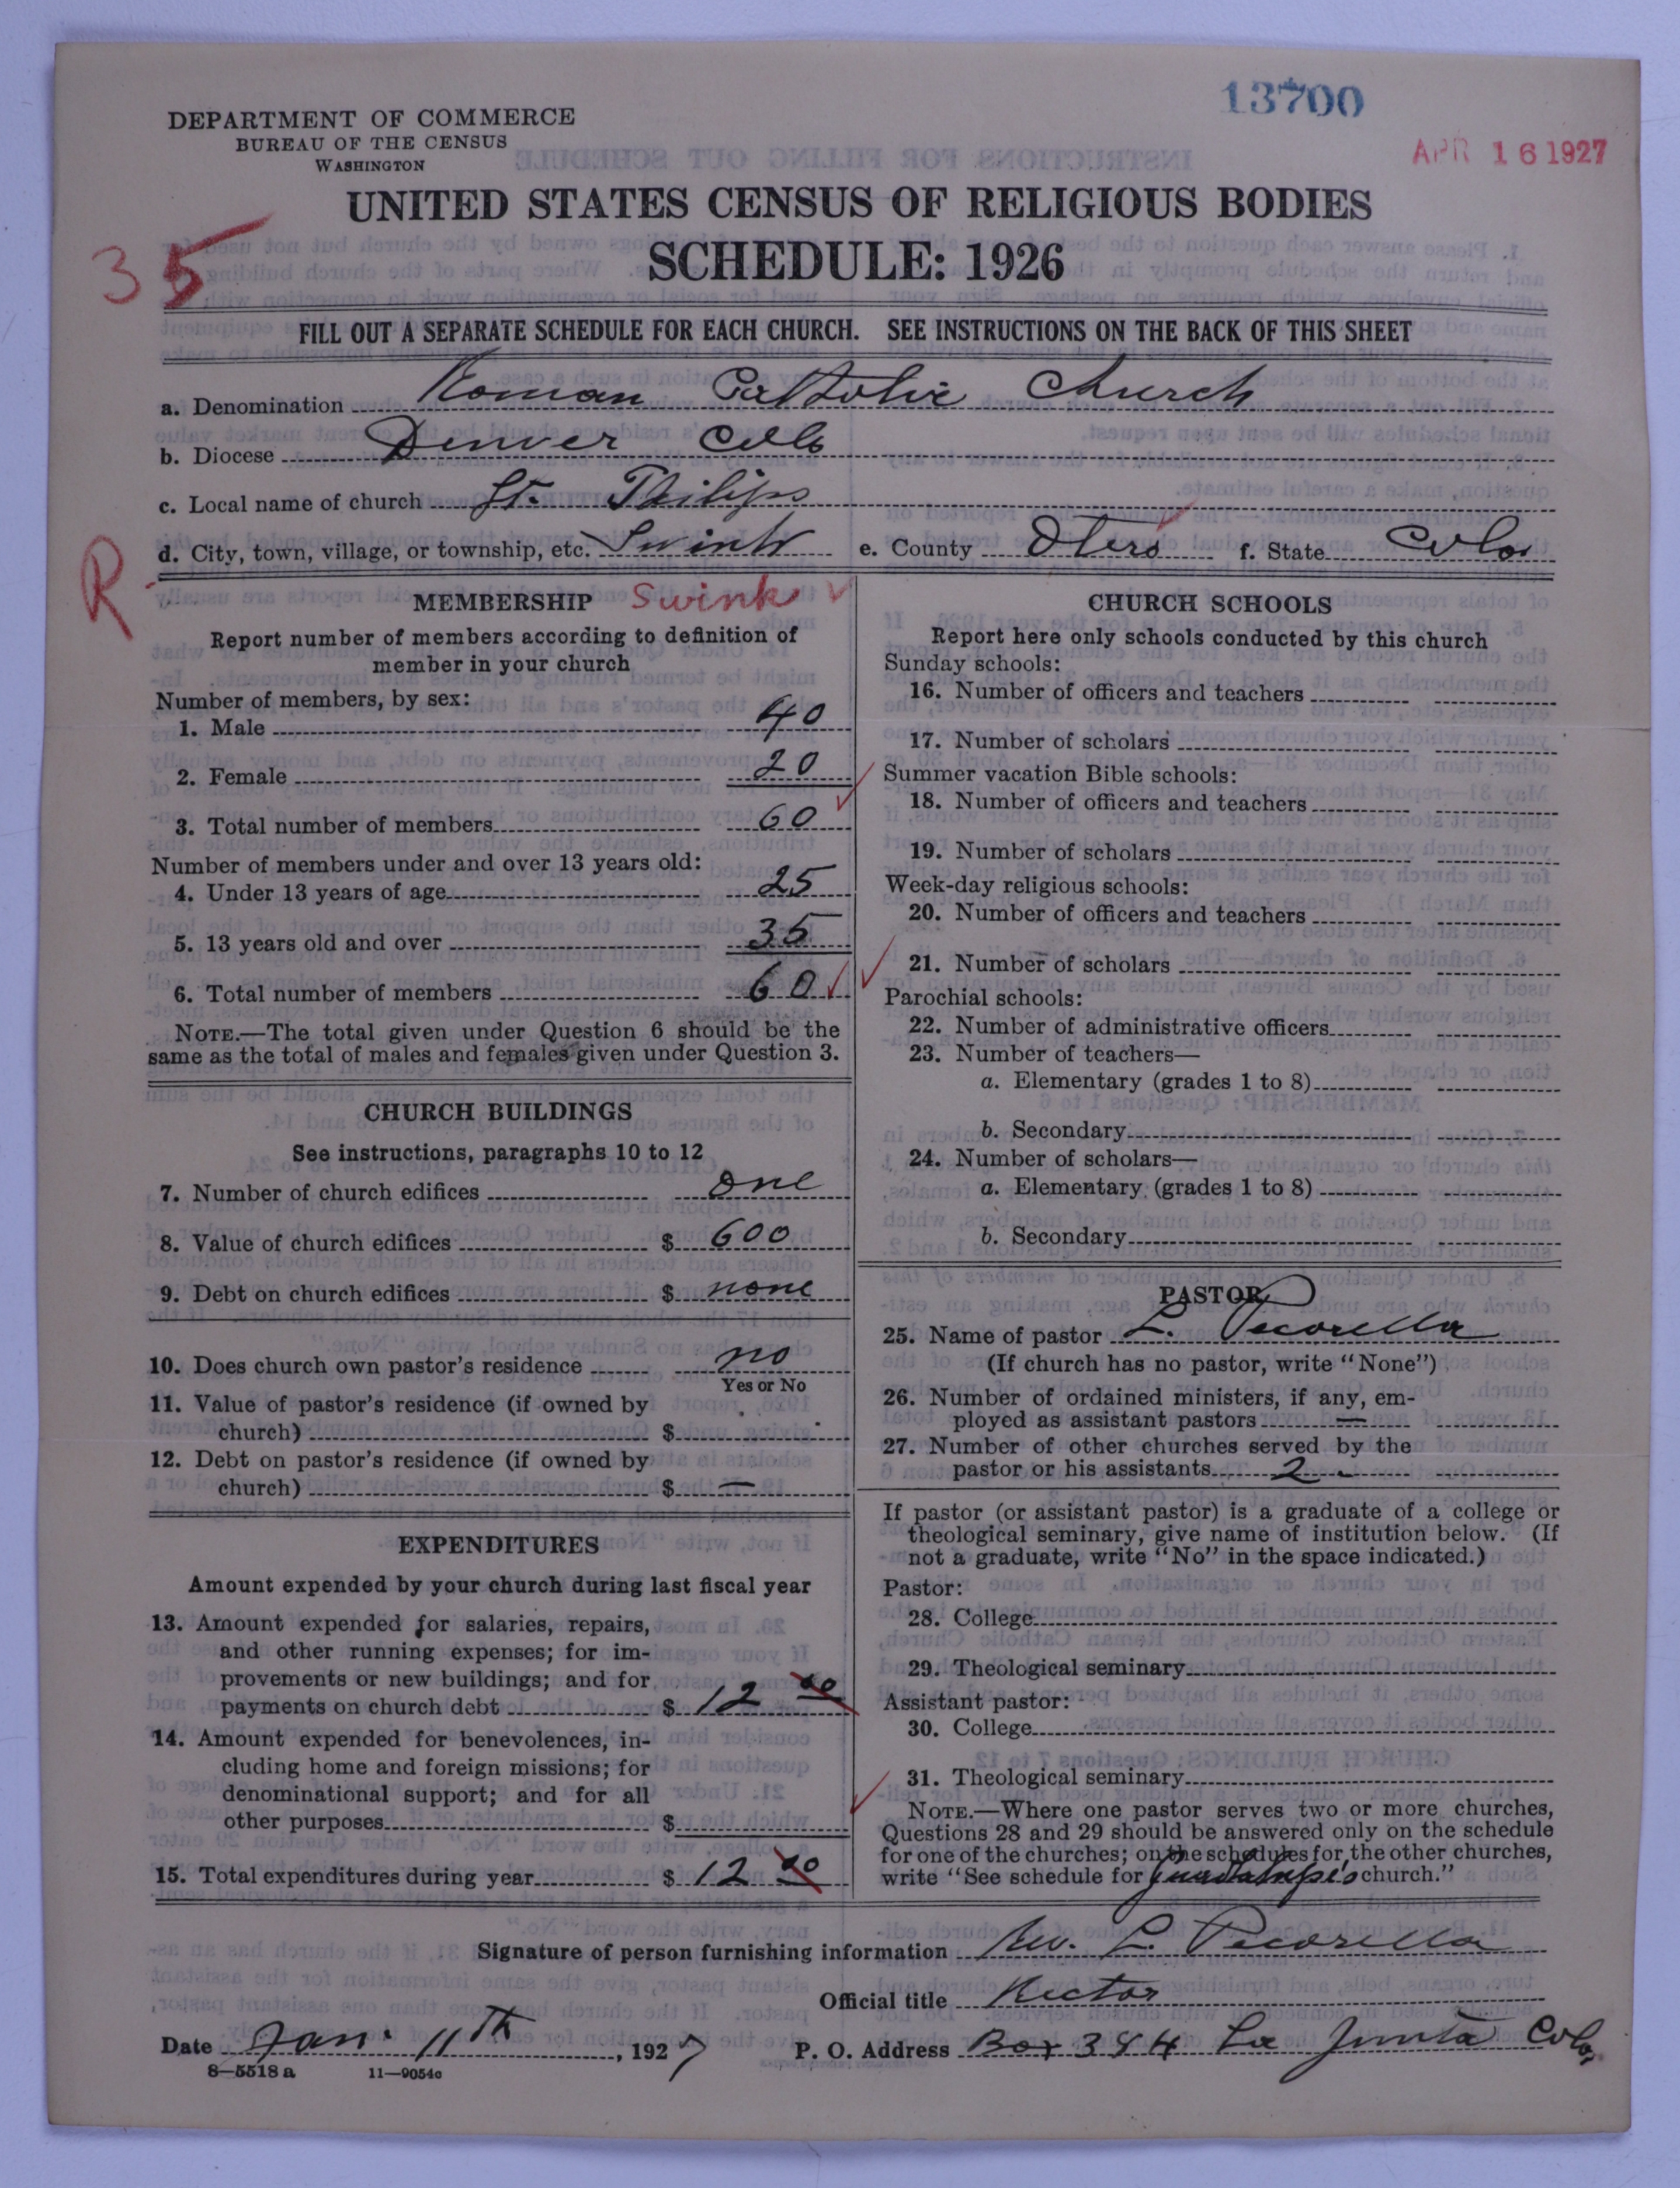 13700
DEPARTMENT OF COMMERCE
BUREAU OF THE CENSUS
WASHINGTON
APR 16 1927
UNITED STATES CENSUS OF RELIGIOUS BODIES
SCHEDULE: 1926
35
FILL OUT A SEPARATE SCHEDULE FOR EACH CHURCH. SEE INSTRUCTIONS ON THE BACK OF THIS SHEET
a. Denomination Roman Catholic Church
b. Diocese Denver Colo
c. Local name of church St. Philips
d. City, town, village, or township, etc. Swink e. County Otero f. State Colo.
R
MEMBERSHIP Swink
Report number of members according to definition of
member in your church
Number of members, by sex:
1. Male 40
2. Female 20
3. Total number of members 60
Number of members under and over 13 years old:
4. Under 13 years of age 25
5. 13 years old and over 35
6. Total number of members 60
NOTE.—The total given under Question 6 should be the
same as the total of males and females given under Question 3.
CHURCH BUILDINGS
See instructions, paragraphs 10 to 12
7. Number of church edifices one
8. Value of church edifices $ 600
9. Debt on church edifices $ none
10. Does church own pastor's residence no
Yes or No
11. Value of pastor's residence (if owned by
church) $
12. Debt on pastor's residence (if owned by
church) $ —
EXPENDITURES
Amount expended by your church during last fiscal year
13. Amount expended for salaries, repairs,
and other running expenses; for im-
provements or new buildings; and for
payments on church debt $ 12 00
14. Amount expended for benevolences, in-
cluding home and foreign missions; for
denominational support; and for all
other purposes $
15. Total expenditures during year $ 12 00
CHURCH SCHOOLS
Report here only schools conducted by this church
Sunday schools:
16. Number of officers and teachers
17. Number of scholars
Summer vacation Bible schools:
18. Number of officers and teachers
19. Number of scholars
Week-day religious schools:
20. Number of officers and teachers
21. Number of scholars
Parochial schools:
22. Number of administrative officers
23. Number of teachers—
a. Elementary (grades 1 to 8)
b. Secondary
24. Number of scholars—
a. Elementary (grades 1 to 8)
b. Secondary
PASTOR
25. Name of pastor L. Pecorella
(If church has no pastor, write "None")
26. Number of ordained ministers, if any, em-
ployed as assistant pastors —
27. Number of other churches served by the
pastor or his assistants 2 -
If pastor (or assistant pastor) is a graduate of a college or
theological seminary, give name of institution below. (If
not a graduate, write "No" in the space indicated.)
Pastor:
28. College
29. Theological seminary
Assistant pastor:
30. College
31. Theological seminary
NOTE.—Where one pastor serves two or more churches,
Questions 28 and 29 should be answered only on the schedule
for one of the churches; on the schedules for the other churches,
write "See schedule for Guadalupe's church."
Signature of person furnishing information Rev. L. Pecorella
Official title Rector
Date Jan. 11th, 1927 P. O. Address Box 384 La Junta Colo.
8—5518 a 11—9054a